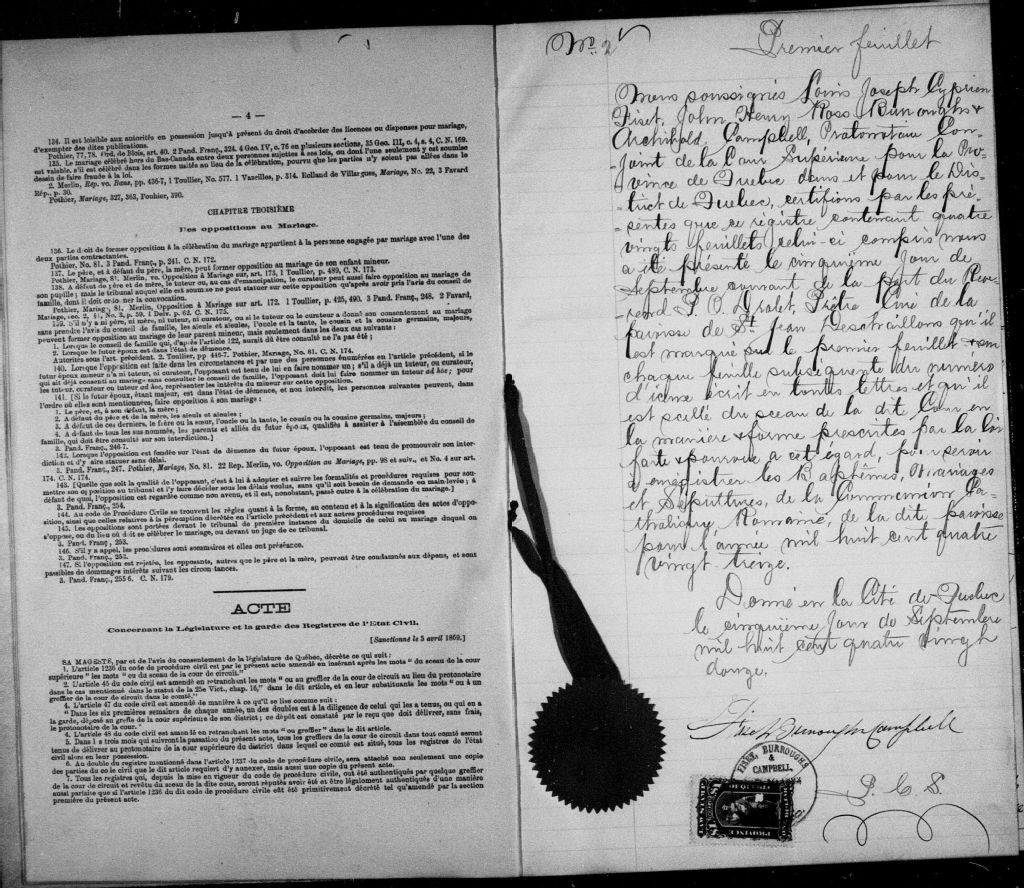 — 4 —
134. Il est loisible aux autorités en possession jusqu'à présent du droit d'accorder des licences ou dispenses pour mariage,
d'exempter des dites publications.
Pothier, 77, 78. Ord. de Blois, art. 40. 2 Pand. Franç., 324. 4 Geo. IV, c. 76 en plusieurs sections, 35 Geo. III, c. 4, s. 4, C. N. 169.
135. Le mariage célébré hors du Bas-Canada entre deux personnes sujettes à ses lois, ou dont l'une seulement y est soumise
est valable, s'il est célébré dans les formes usitées au lieu de la célébration, pourvu que les parties n'y soient pas allées dans le
dessein de faire fraude à la loi.
2. Merlin, Rép. vo. Bans, pp. 436-7, 1 Toullier, No. 577. 1 Vazeilles, p. 314. Rolland de Villargues, Mariage, No. 22, 3 Favard
Rép., p. 30.
Pothier, Mariage, 327, 363, Pouhier, 390.
CHAPITRE TROISIÈME
Des oppositions au Mariage.
136. Le droit de former opposition à la célébration du mariage appartient à la personne engagée par mariage avec l'une des
deux parties contractantes.
Pothier, No. 81. 3 Pand. Franç., p. 241. C. N. 172.
137. Le père, et à défaut du père, la mère, peut former opposition au mariage de son enfant mineur.
Pothier, Mariage, 81. Merlin, vo. Opposition à Mariage sur, art. 173, 1 Toullier, p. 489, C. N. 173.
138. A défaut de père et de mère, le tuteur, ou, au cas d'émancipation, le curateur peut aussi faire opposition au mariage de
son pupille; mais le tribunal auquel elle est soumise ne peut statuer sur cette opposition qu'après avoir pris l'avis du conseil de
famille, dont il doit ordonner la convocation.
Pothier, Mariage, 81, Merlin, Opposition à Mariage sur art. 172. 1 Toullier, p. 425, 490. 3 Pand. Franç., 248. 2 Favard,
Mariage, sec. 2, § 1, No. 3, p. 59. 1 Delv. p. 62. C. N. 175.
139. S'il n'y a ni père, ni mère, ni tuteur, ni curateur, ou si le tuteur ou le curateur a donné son consentement au mariage
sans prendre l'avis du conseil de famille, les aïeuls et aïeules, l'oncle et la tante, le cousin et la cousine germains, majeurs,
peuvent former opposition au mariage de leur parent mineur, mais seulement dans les deux cas suivants:
1. Lorsque le conseil de famille qui, d'après l'article 122, aurait dû être consulté ne l'a pas été;
2. Lorsque le futur époux est dans l'état de démence.
Autorités sous l'art. précédent. 2. Toullier, pp 446-7. Pothier, Mariage, No. 81. C. N. 174.
140. Lorsque l'opposition est faite dans les circonstances et par une des personnes énumérées en l'article précédent, si le
futur époux mineur n'a ni tuteur, ni curateur, l'opposant est tenu de lui en faire nommer un; s'il a déjà un tuteur, ou curateur,
qui ait déjà consenti au mariage sans consulter le conseil de famille, l'opposant doit lui faire nommer un tuteur ad hoc; pour
les tuteur, curateur ou tuteur ad hoc, représenter les intérêts du mineur sur cette opposition.
141. [Si le futur époux, étant majeur, est dans l'état de démence, et non interdit, les personnes suivantes peuvent, dans
l'ordre où elles sont mentionnées, faire opposition à son mariage:
1. Le père, et, à son défaut, la mère;
2. A défaut du père et de la mère, les aïeuls et aïeules;
3. A défaut de ces derniers, le frère ou la sœur, l'oncle ou la tante, le cousin ou la cousine germains, majeurs;
4. A défaut de tous les sus-nommés, les parents et alliés du futur époux, qualifiés à assister à l'assemblée du conseil de
famille, qui doit être consulté sur son interdiction.]
3. Pand. Franç., 246-7.
142. Lorsque l'opposition est fondée sur l'état de démence du futur époux, l'opposant est tenu de promouvoir son inter-
diction et d'y faire statuer sans délai.
3. Pand. Franç., 247. Pothier, Mariage, No. 81. 22 Rep. Merlin, vo. Opposition au Mariage, pp. 98 et suiv., et No. 4 sur art.
174. C. N. 174.
143. [Quelle que soit la qualité de l'opposant, c'est à lui à adopter et suivre les formalités et procédures requises pour sou-
mettre son opposition au tribunal et l'y faire décider sous les délais voulus, sans qu'il soit besoin de demande en main-levée; à
défaut de quoi, l'opposition est regardée comme non avenu, et il est, nonobstant, passé outre à la célébration du mariage.]
3. Pand. Franç., 254.
144. Au code de Procédure Civile se trouvent les règles quant à la forme, au contenu et à la signification des actes d'oppo-
sition, ainsi que celles relatives à la péremption décrétée en l'article précédent et aux autres procédures requises
145. Les oppositions sont portées devant le tribunal de première instance du domicile de celui au mariage duquel on
s'oppose, ou du lieu où doit se célébrer le mariage, ou devant un juge de ce tribunal.
3. Pand. Franç., 253.
146. S'il y a appel, les procédures sont sommaires et elles ont préséance.
3. Pand. Franç., 253.
147. Si l'opposition est rejetée, les opposants, autres que le père et la mère, peuvent être condamnés aux dépens, et sont
passibles de dommages intérêts suivant les circonstances.
3. Pand. Franç., 255 6. C. N. 179.
ACTE
Concernant la Législature et la garde des Registres de l'Etat Civil.
[Sanctionné le 5 avril 1869.]
SA MAGESTÉ, par et de l'avis du consentement de la législature de Québec, décrète ce qui suit:
1. L'article 1236 du code de procédure civil est par le présent acte amendé en insérant après les mots "du sceau de la cour
supérieure" les mots "ou du sceau de la cour de circuit."
2. L'article 45 du code civil est amendé en retranchant les mots "ou au greffier de la cour de circuit au lieu du protonotaire
dans le cas mentionné dans le statut de la 25e Vict., chap. 16," dans le dit article, et en leur substituants les mots "ou à un
greffier de la cour de circuit dans le comté."
4. L'article 47 du code civil est amendé de manière à ce qu'il se lise comme suit:
"Dans les six premières semaines de chaque année, un des doubles est à la diligence de celui qui les a tenus, ou qui en a
la garde, déposé au greffe de la cour supérieure de son district; ce dépôt est constaté par le reçu que doit délivrer, sans frais,
le protonotaire de la cour."
4. L'article 48 du code civil est amendé en retranchant les mots "ou greffier" dans le dit article.
5. Dans les trois mois qui suivront la passation du présent acte, tous les greffiers de la cour de circuit dans tout comté seront
tenus de délivrer au protonotaire de la cour supérieure du district dans lequel ce comté est situé, tous les registres de l'état
civil alors en leur possession.
6. Au double du registre mentionné dans l'article 1237 du code de procédure civile, sera attaché non seulement une copie
des parties du code civil que le dit article requiert d'y annexer, mais aussi une copie du présent acte.
7. Tous les registres qui, depuis la mise en vigueur du code de procédure civile, ont été authentiqués par quelque greffier
de la cour de circuit et revêtu du sceau de la dite cour, seront réputés avoir été et être légalement authentiqués d'une manière
aussi parfaite que si l'article 1236 du dit code de procédure civile eût été primitivement décrété tel qu'amendé par la section
première du présent acte.
No. 2
Premier feuillet
Nous soussignés Louis Joseph Cyprien
Fiset, John Henry Ross Burroughs &
Archibald Campbell, Protonotaire Con-
joint de la Cour Supérieure pour la Pro-
vince de Quebec dans et pour le Dis-
trict de Quebec, certifions par les pré-
sentes que ce régistre contenant quatre
vingts feuillets, celui-ci compris nous
a été présenté le cinquième jour de
Septembre courant de la part du Reve-
rend P. O. Drolet, Prêtre Curé de la
paroisse de St. Jean Deschaillons qu'il
est marqué sur le premier feuillet & sur
chaque feuille subséquente du numéro
d'icelle écrit en toutes lettres et qu'il
est scellé du sceau de la dite Cour en
la manière & forme prescrites par la Loi
faite & pourvue à cet égard, pour servir
à enregistrer les Baptêmes, Mariages
et Sépultures, de la Communion Ca-
tholique Romaine, de la dite paroisse
pour l'année mil huit cent quatre
vingt treize.
Donné en la Cité de Quebec
le cinquième jour de Septembre
mil huit cent quatre vingt
douze.
Fiset Burroughs Campbell
FISET, BURROUGHS
&
CAMPBELL,
P. C. S.
PROVINCE